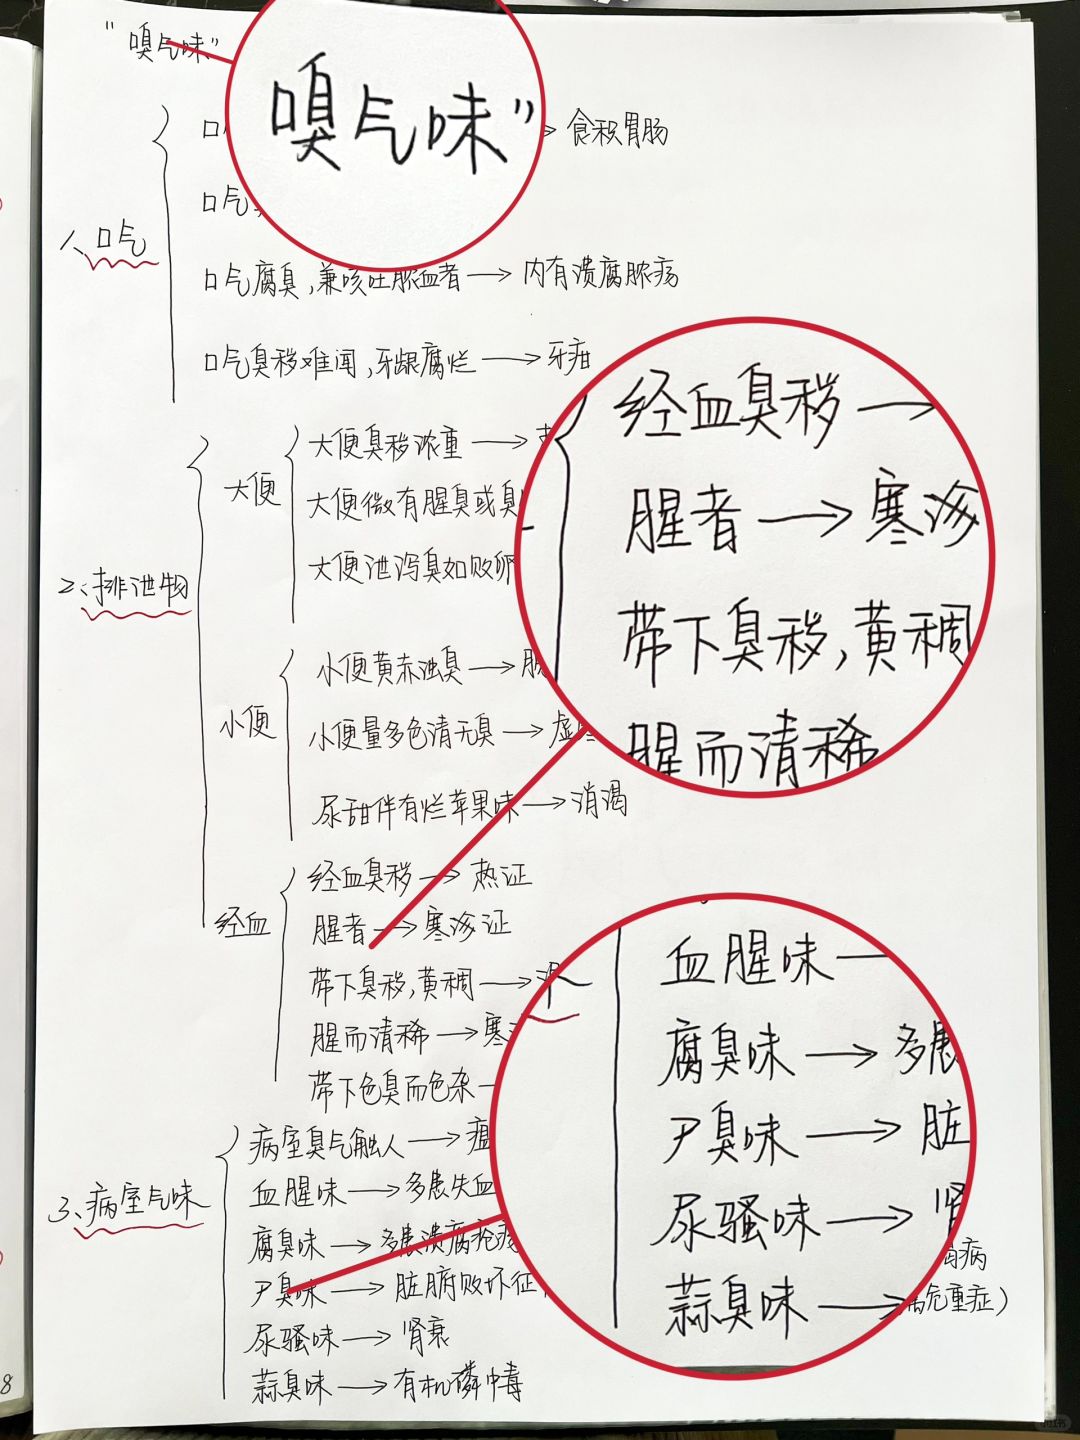 "嗅气味"
嗅气味"
口
→ 食积胃肠
口气
1、口气
口气腐臭,兼咳吐脓血者 → 内有溃腐脓疡
口气臭秽难闻,牙龈腐烂 → 牙疳
大便
大便臭秽浓重 →
大便微有腥臭或臭
大便泄泻臭如败卵
2、排泄物
小便
小便黄赤浊臭 →
小便量多色清无臭 → 虚寒
尿甜伴有烂苹果味 → 消渴
经血
经血臭秽 → 热证
腥者 → 寒湿证
带下臭秽,黄稠 →
腥而清稀 → 寒
带下色臭而色杂
经血臭秽 →
腥者 → 寒
带下臭秽,黄稠
腥而清稀
3、病室气味
病室臭气触人 → 瘟
血腥味 → 多患失血
腐臭味 → 多患溃腐疮疡
尸臭味 → 脏腑败坏
尿骚味 → 肾衰
蒜臭味 → 有机磷中毒
血腥味
腐臭味 → 多患
尸臭味 → 脏
尿骚味 → 肾
蒜臭味 →
病
危重症)
8